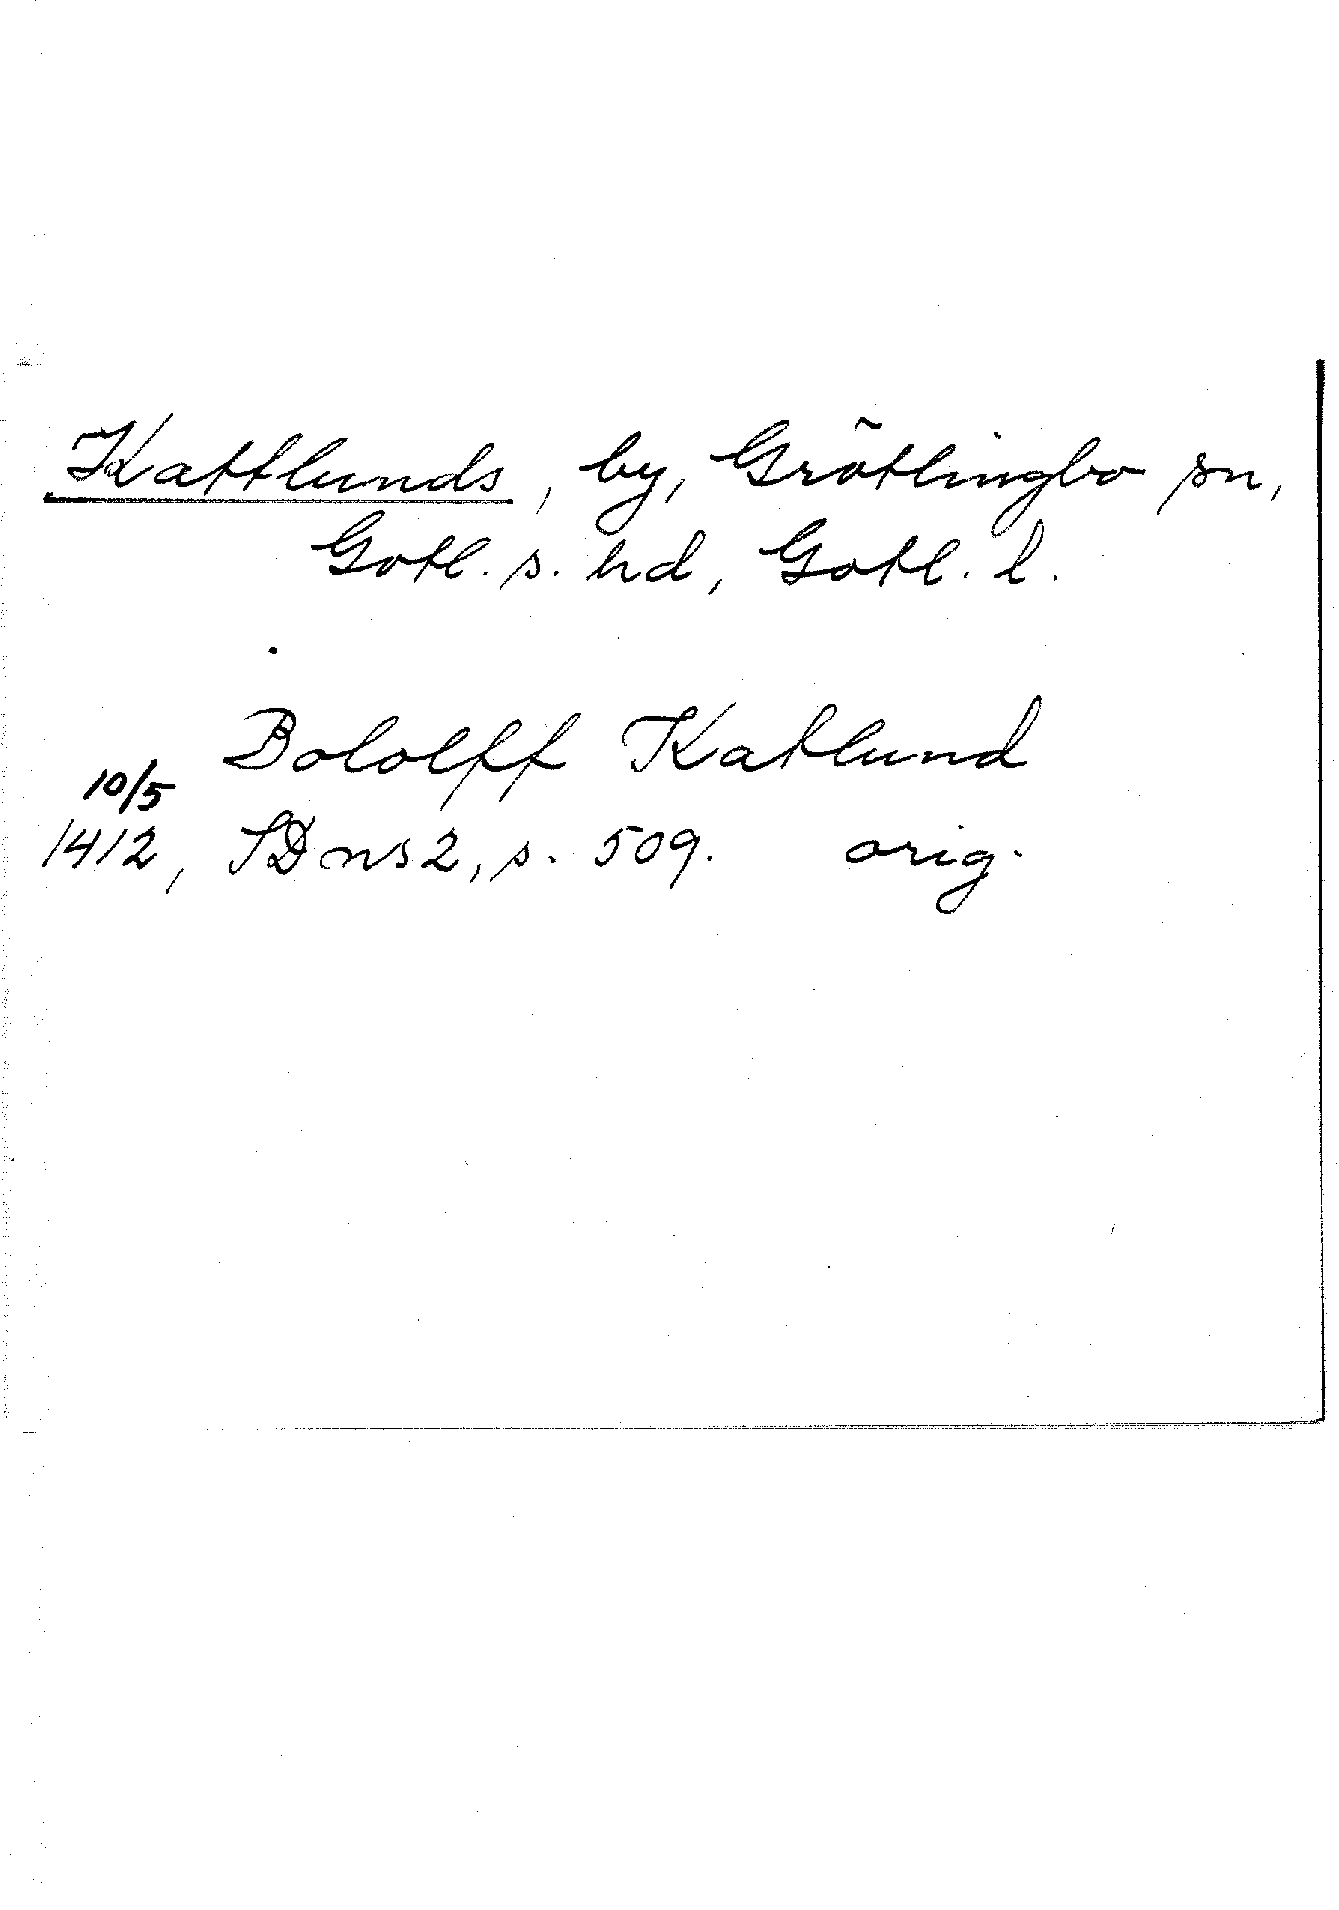 Kattlunds, by, Grötlingbo sn,
Gotl. s. hd, Gotl. l.
Bololff Katlund
10/5
1412, SD ns 2, s. 509. orig.